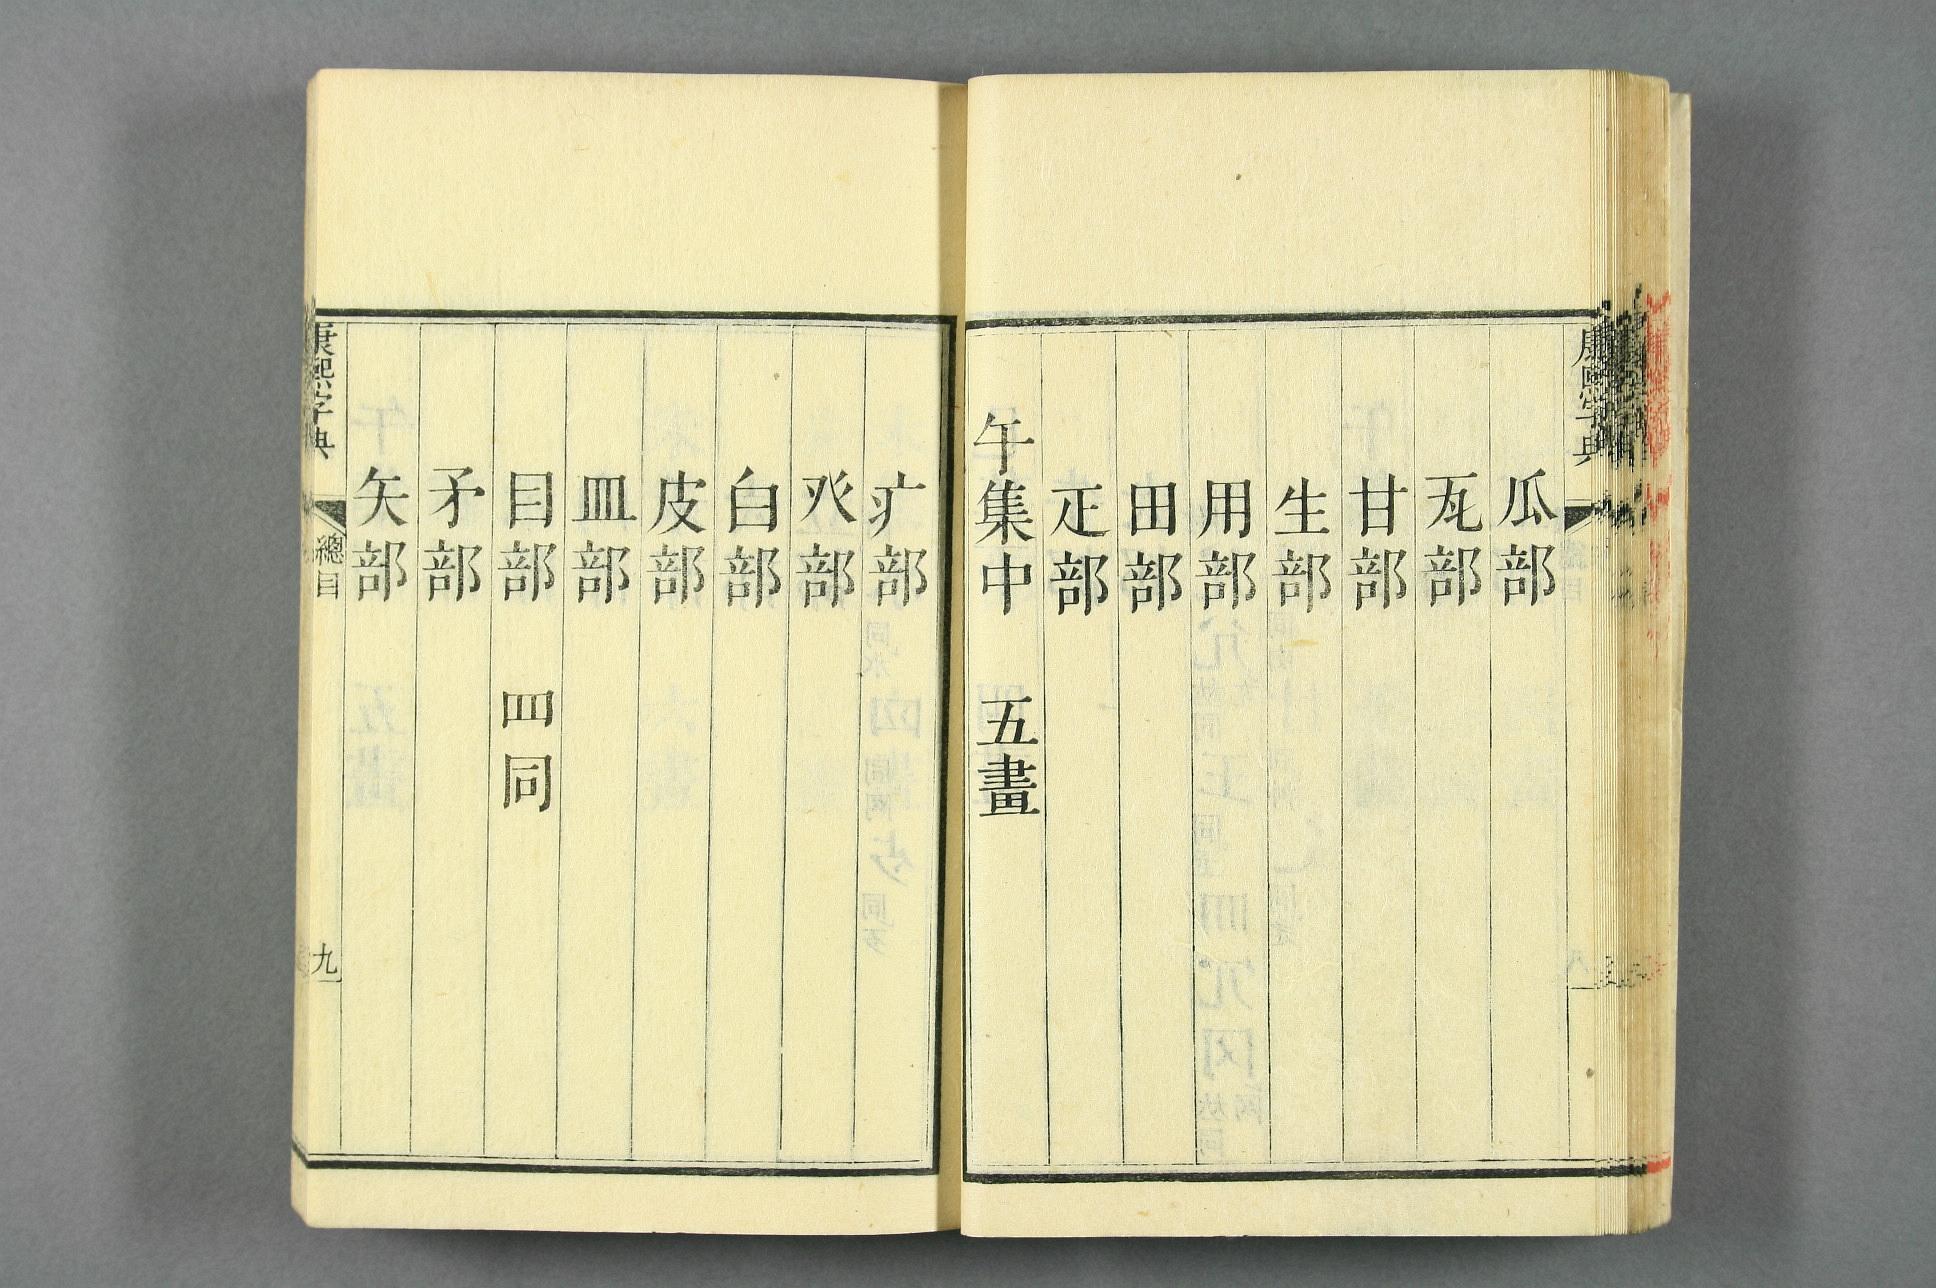 康熙字典
瓜部
瓦部
甘部
生部
用部
田部
疋部
午集中 五畫
疒部
癶部
白部
皮部
皿部
目部 罒同
矛部
矢部
康熙字典
總目
九